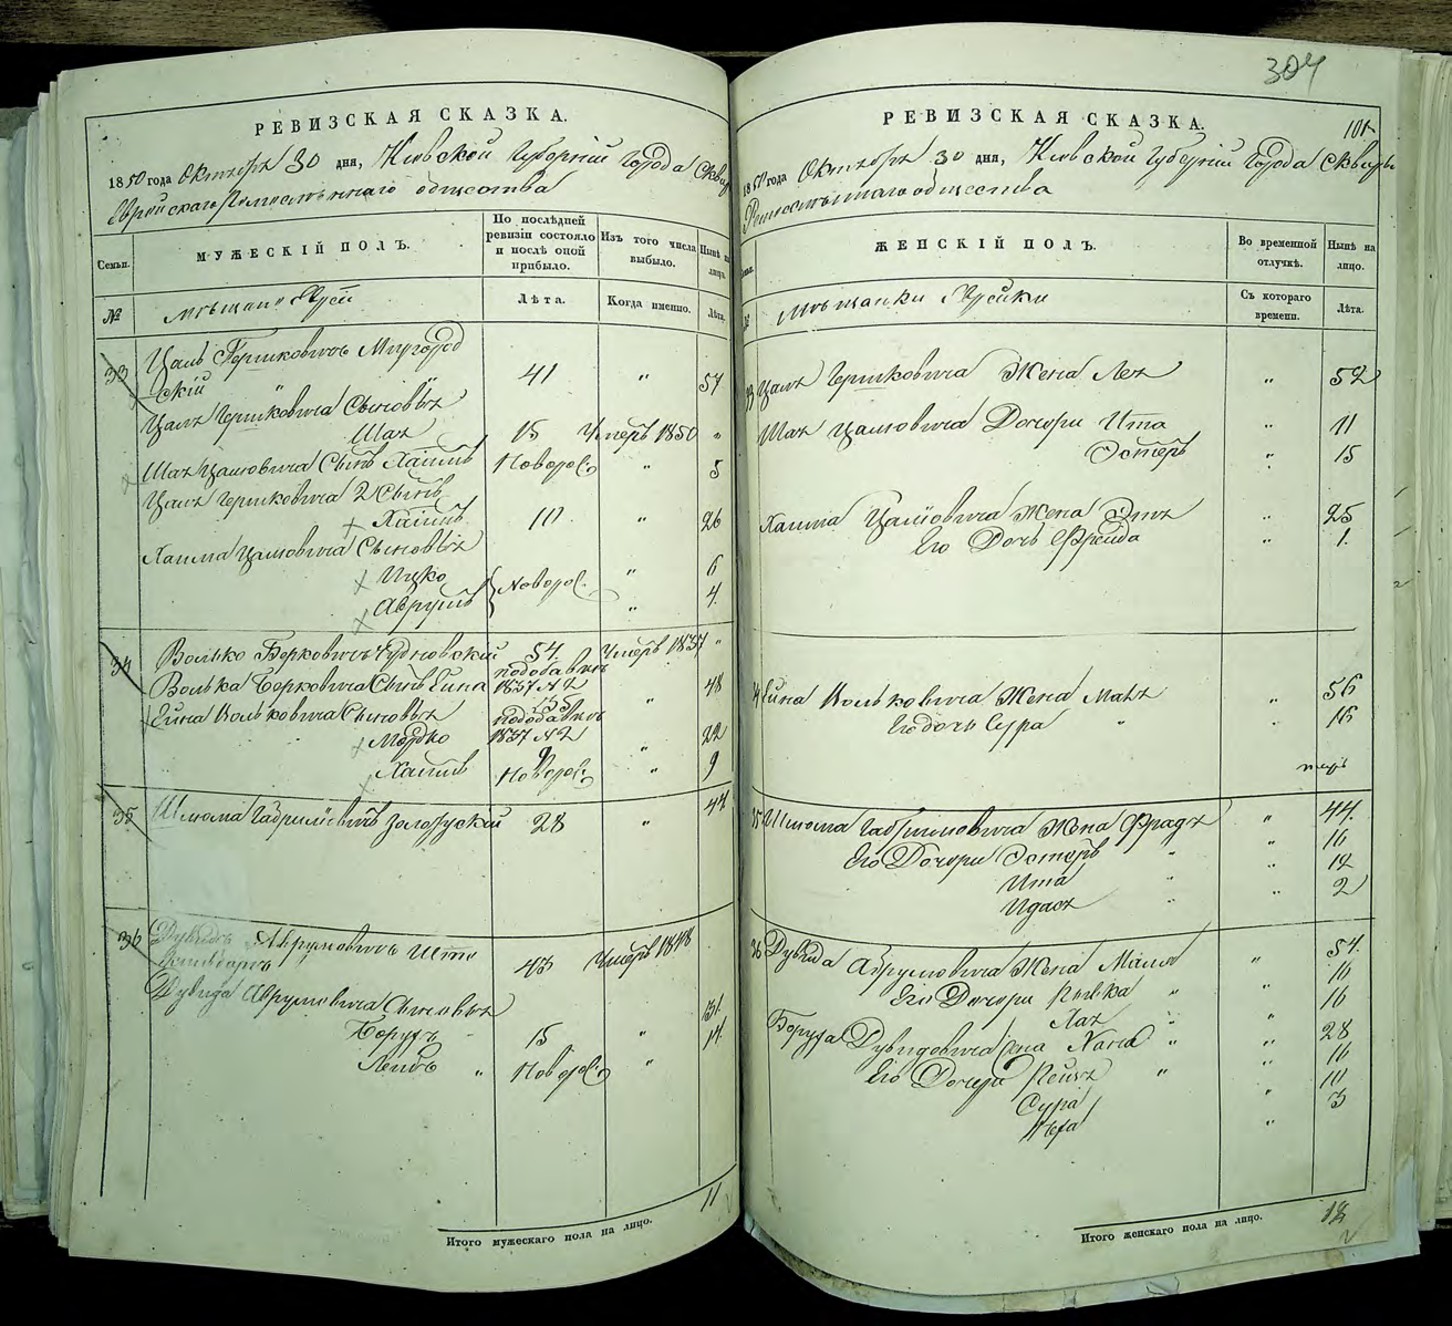 304
РЕВИЗСКАЯ СКАЗКА.
1850 года Октября 30 дня, Кіевской Губерніи Города Сквиры
Еврейскаго общества
Семьи.
МУЖЕСКІЙ ПОЛЪ.
По послѣдней ревизіи состояло и послѣ оной прибыло.
Изъ того числа выбыло.
Нынѣ на лицо.
№
Мѣщане Евреи
Лѣта.
Когда именно.
Лѣта.
33 Цаль Гершковичъ Миргород
скій 41 " 57
Цаля Гершковича Сыновья
Шая 15 Умеръ 1850 "
Шаи Цалiовича Сынъ Хаимъ Новорож. " 5
Цаля Гершковича 2 Сынъ
Хаимъ 10 " 26
Хаима Цалiовича Сыновья
Ицко Новорож. " 6
Аврумъ " 4
34 Волько Берковичъ Чудновскій 54 Умеръ 1837 "
Волька Берковича Сынъ Еина 1837 № 2 48
Еина Вольковича Сыновья "
Мордко 1837 № 2 " 22
Хаимъ Новорож. " 9
35 Шлiома Габрилiовичъ 28 " 44
36 Дувидъ Аврумовичъ 43 Умеръ 1848
Дувида Аврумовича Сыновья
Борухъ 15 " 31
Лейбъ " Новорож. " 14
Итого мужескаго пола на лицо.
11
РЕВИЗСКАЯ СКАЗКА.
101
1850 года Октября 30 дня, Кіевской Губерніи Города Сквиры
общества
ЖЕНСКІЙ ПОЛЪ.
Во временной отлучкѣ.
Нынѣ на лицо.
Мѣщанки Еврейки
Съ котораго времени.
Лѣта.
33 Цаля Гершковича Жена Лея " 52
Шаи Цалiовича Дочери Ита " 11
Эстеръ " 15
Хаима Цалiовича Жена Эня " 25
Его Дочь Фрейда " 1.
34 Еина Вольковича Жена Мася " 56
Его дочь Сура " 16
35 Шлiома Габрилiовича Жена Фрадя " 44.
Его Дочери Эстеръ " 16
Ита " 12
Идася " 2
36 Дувида Аврумовича Жена " 54.
Его Дочери Ривка " 16
Хая " 16
Боруха Дувидовича жена Хана " 28
Его Дочери Рейзя " 16
Сура " 10
" 3
Итого женскаго пола на лицо.
18